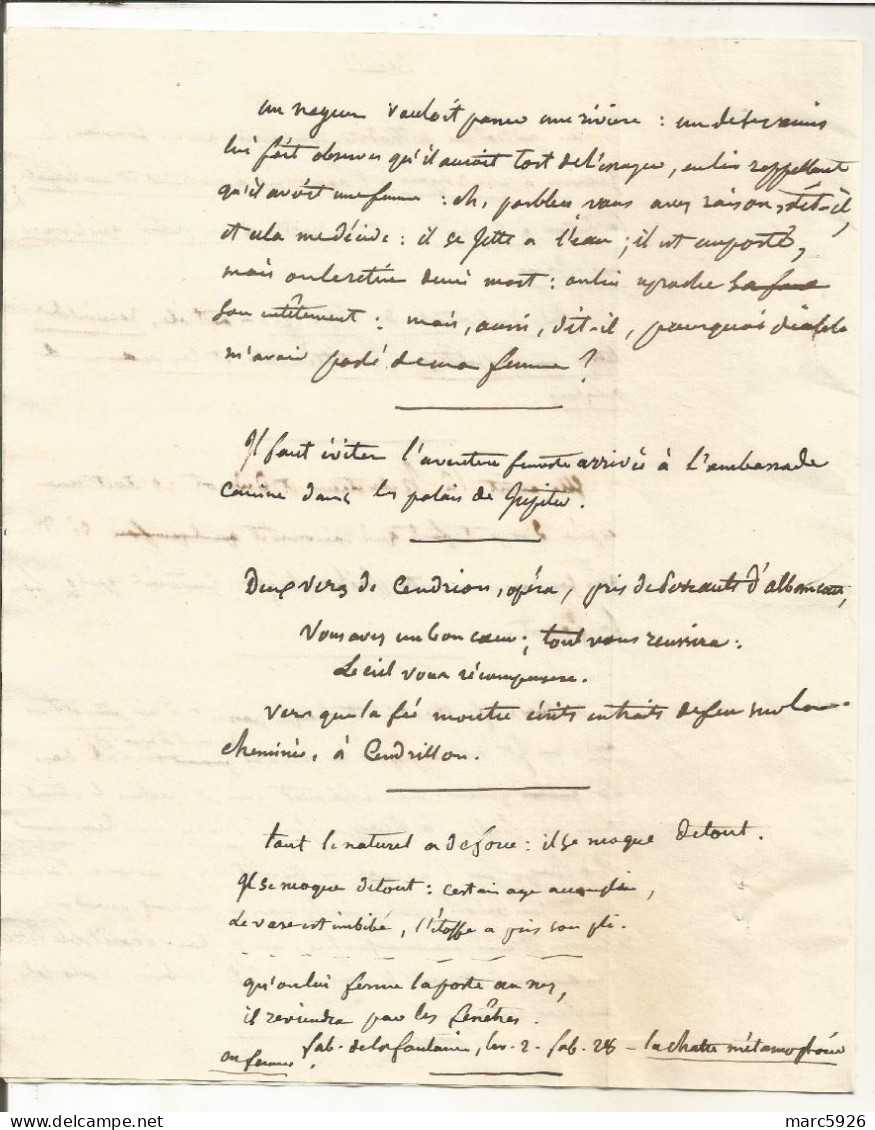 un nageur vouloit passer une rivière : un de ses amis
lui fait observer qu'il auroit tort de l'essayer, en lui rappellant
qu'il avoit une femme : eh, parbleu, vous avez raison, dit-il,
et cela me décide : il se jette a l'eau ; il est emporté,
mais on le retire demi mort : on lui reproche
son entêtement : mais, aussi, dit-il, pourquoi diable
m'avoir parlé de ma femme ?
Il faut éviter l'aventure funeste arrivée à l'ambassade
comme dans les palais de Jupiter.
Deux vers de Cendrion, opéra, pris de
Vous avez un bon coeur ; tout vous reussira :
Le ciel vous récompensera.
vers que la fée montre écrits en traits de feu sur la
cheminée, à Cendrillon.
tant le naturel a de force : il se moque de tout.
Il se moque de tout : certain age accompli,
Le vase est imbibé, l'étoffe a pris son pli.
qu'on lui ferme la porte au nez,
il reviendra par les fenêtres.
fab. de la fontaine, liv. 2. fab. 28 - la chatte métamorphosée
en femme.
marc5926